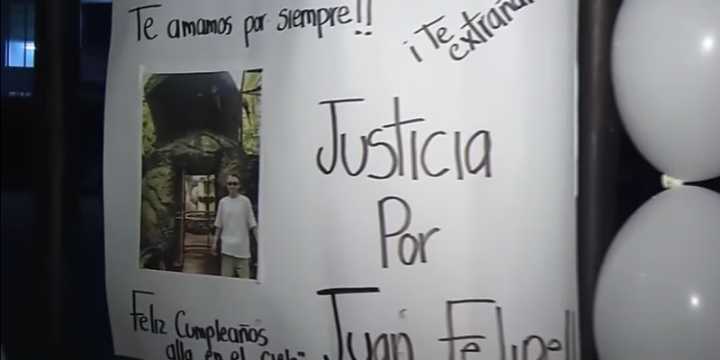 Te amamos por siempre!!
¡Te
Justicia
Por
Juan Felipe
Feliz Cumpleaños
alla en el cielo